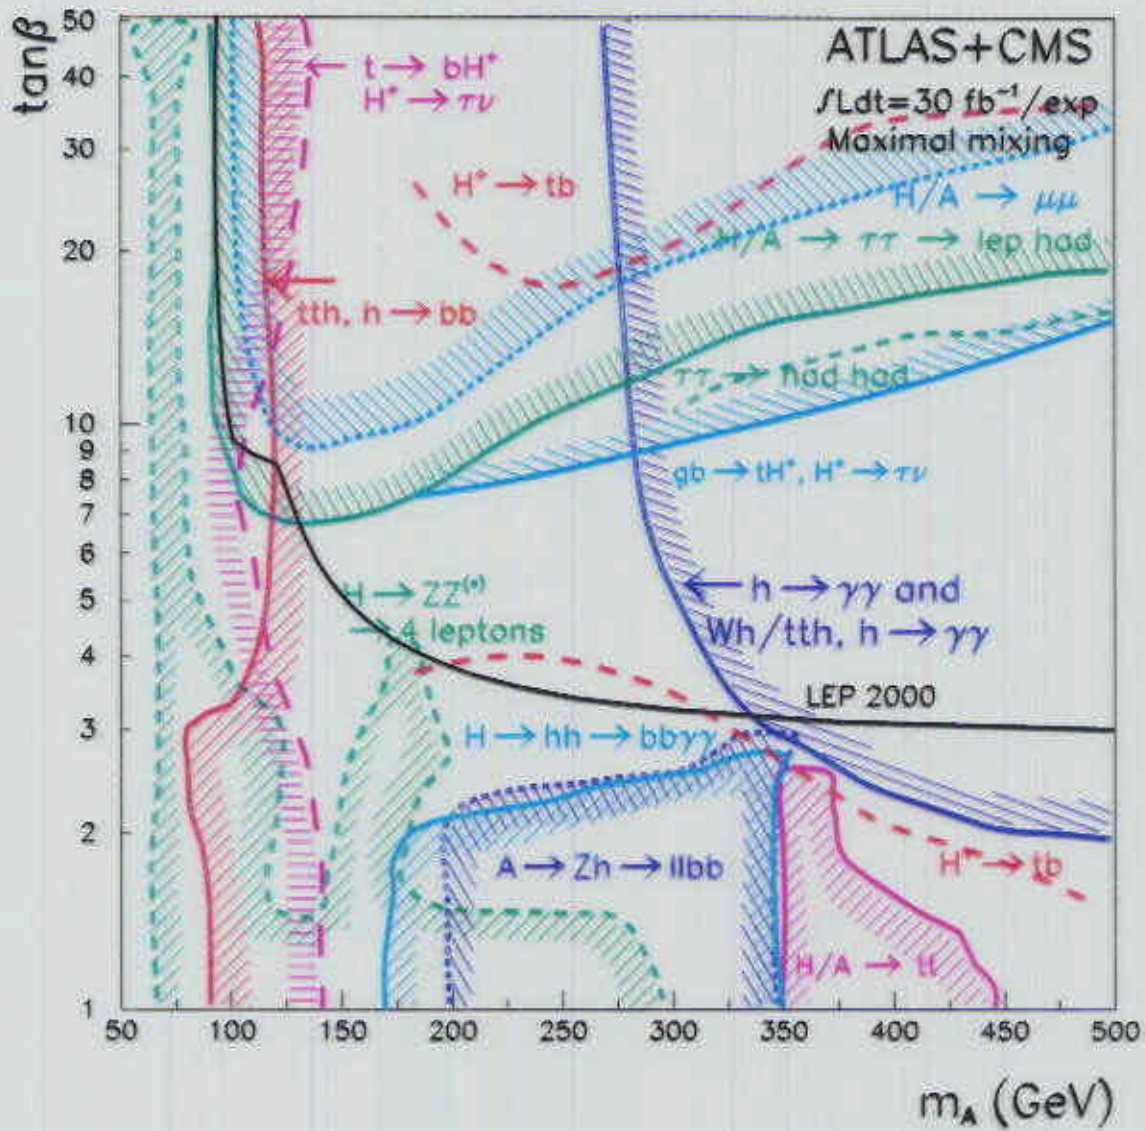 tanβ
50
40
30
20
10
9
8
7
6
5
4
3
2
1
ATLAS+CMS
∫Ldt=30 fb⁻¹/exp
Maximal mixing
t → bH⁺
H⁺ → τν
H⁺ → tb
H/A → μμ
H/A → ττ → lep had
tth, h → bb
ττ → had had
gb → tH⁺, H⁺ → τν
H → ZZ⁽*⁾
→ 4 leptons
h → γγ and
Wh/tth, h → γγ
LEP 2000
H → hh → bbγγ
A → Zh → llbb
H⁺ → tb
H/A → tt
50 100 150 200 250 300 350 400 450 500
m_A (GeV)